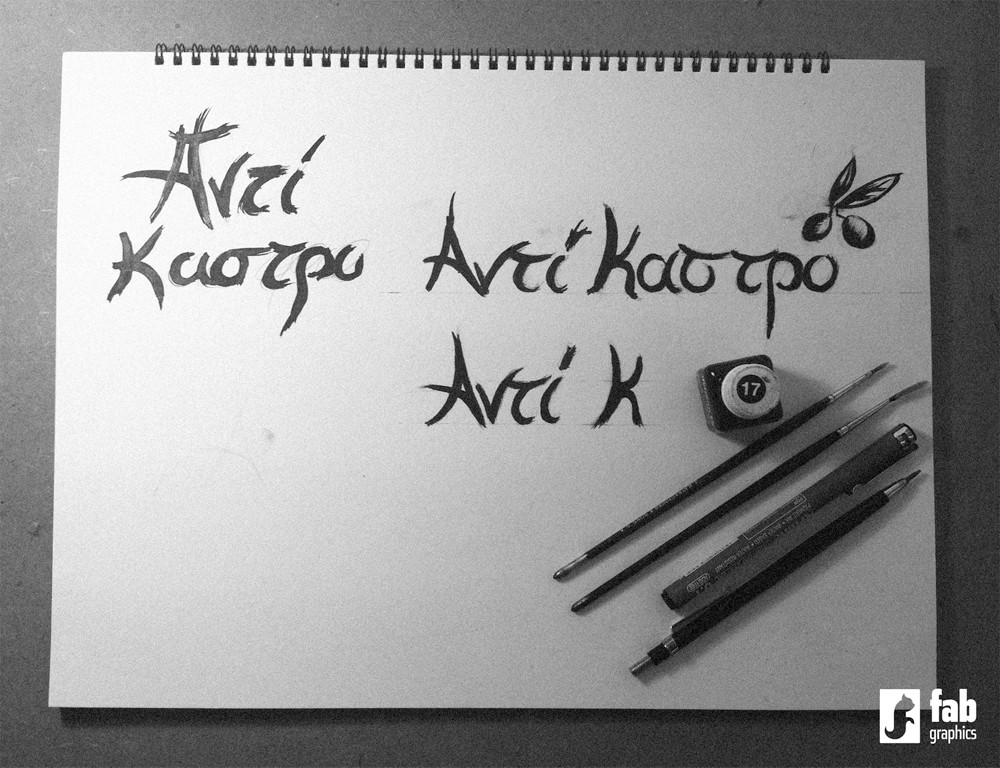 Αντί
Καστρο
Αντί Καστρο
Αντί Κ
17
fab
graphics